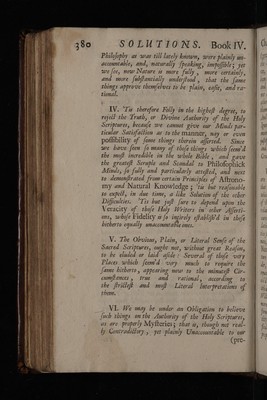 380 SOLUTIONS. Book IV.
Philosophy as was till lately known, were plainly un-
accountable, and, naturally speaking, impossible; yet
we see, now Nature is more fully, more certainly,
and more substantially understood, that the same
things approve themselves to be plain, easie, and ra-
tional.
IV. 'Tis therefore Folly in the highest degree, to
reject the Truth, or Divine Authority of the Holy
Scriptures, because we cannot give our Minds par-
ticular Satisfaction as to the manner, nay or even
possibility of some things therein asserted. Since
we have seen so many of those things which seem'd
the most incredible in the whole Bible, and gave
the greatest Scruple and Scandal to Philosophick
Minds, so fully and particularly attested, and next
to demonstrated from certain Principles of Astrono-
my and Natural Knowledge; 'tis but reasonable
to expect, in due time, a like Solution of the other
Difficulties. 'Tis but just sure to depend upon the
Veracity of those Holy Writers in other Asserti-
ons, whose Fidelity is so intirely establish'd in these
hitherto equally unaccountable ones.
V. The Obvious, Plain, or Literal Sense of the
Sacred Scriptures, ought not, without great Reason,
to be eluded or laid aside: Several of those very
Places which seem'd very much to require the
same hitherto, appearing now to the minutest Cir-
cumstances, true and rational, according to
the strictest and most Literal Interpretations of
them.
VI. We may be under an Obligation to believe
such things on the Authority of the Holy Scriptures,
as are properly Mysteries; that is, though not real-
ly Contradictory, yet plainly Unaccountable to our
(pre-